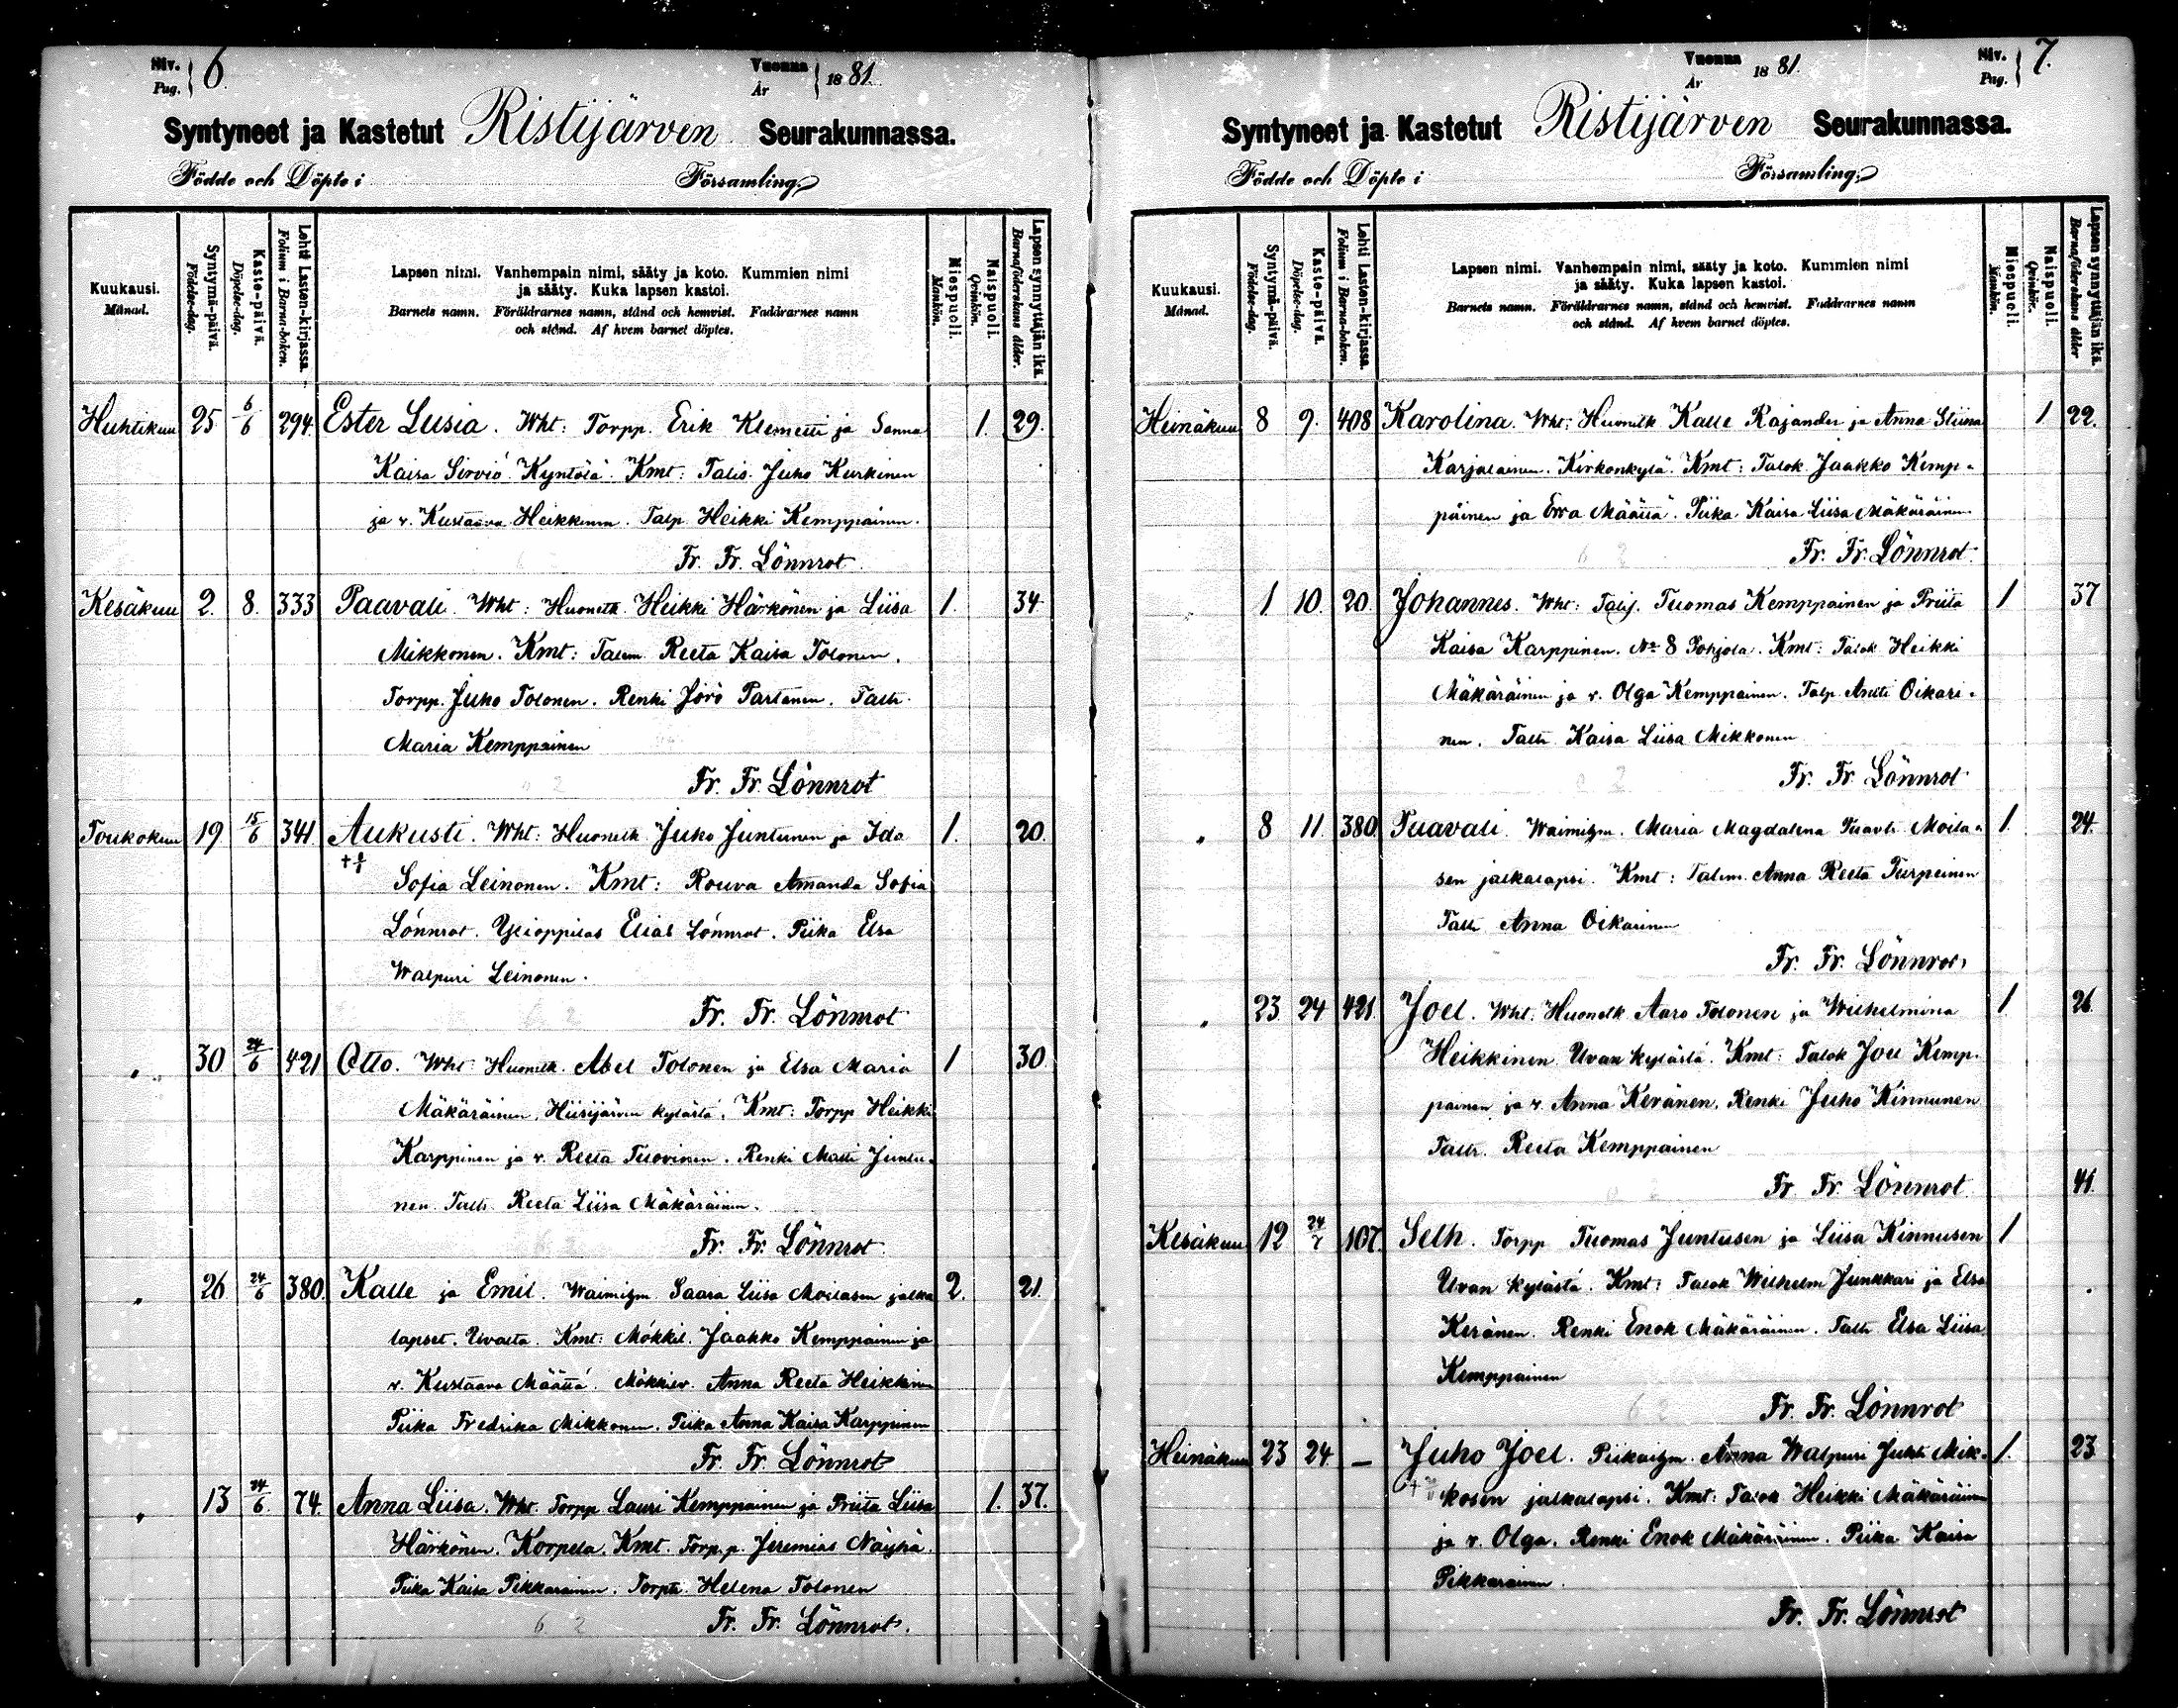 Siv.
Pag. 6.
Vuonna
År 1881.
Syntyneet ja Kastetut Ristijärven Seurakunnassa.
Födde och Döpte i Församling.
Kuukausi.
Månad.
Syntymä-päivä.
Födelse-dag.
Kaste-päivä.
Döpelse-dag.
Lehti Lasten-kirjassa.
Folium i Barna-boken.
Lapsen nimi. Vanhempain nimi, sääty ja koto. Kummien nimi
ja sääty. Kuka lapsen kastoi.
Barnets namn. Föräldrarnes namn, stånd och hemvist. Faddrarnes namn
och stånd. Af hvem barnet döptes.
Miespuoli.
Mankön.
Naispuoli.
Qvinkön.
Lapsen synnyttäjän ikä.
Barnaföderskans ålder.
Huhtikuu 25 6/6 294. Ester Lusia. Wht: Torpp. Erik Klemetti ja Sanna 1. 29.
Kaisa Sirviö. Kyntölä. Kmt: Talis. Juho Kurkinen
ja v. Kustaava Heikkinen. Talp. Heikki Kemppainen.
Fr. Fr. Lönnrot
Kesäkuu 2. 8. 333 Paavali. Wht: Huonelk. Heikki Härkönen ja Liisa 1. 34
Mikkonen. Kmt: Talem. Reeta Kaisa Tolonen.
Torpp. Juho Tolonen. Renki Jörö Partanen. Taltr.
Maria Kemppainen
Fr. Fr. Lönnrot
Toukokuu 19 15/6 341. Aukusti. Wht: Huonelk Juho Juntunen ja Ida 1. 20.
Sofia Leinonen. Kmt: Rouva Amanda Sofia
Lönnrot. Ylioppilas Elias Lönnrot. Piika Elsa
Walpuri Leinonen.
Fr. Fr. Lönnrot
" 30 24/6 421 Otto. Wht: Huonelk. Abel Tolonen ja Elsa Maria 1 30.
Mäkäräinen. Hiisijärven kylästä. Kmt: Torpp Heikki
Karppinen ja v. Reeta Tuovinen. Renki Matti Juntu-
nen Taltr. Reeta Liisa Mäkäräinen.
Fr. Fr. Lönnrot
" 26 24/6 380. Kalle ja Emil. Waimiym Saara Liisa Moilasen jalka 2. 21.
lapset. Uvalta. Kmt: Mökkil. Jaakko Kemppainen ja
v. Kustaava Määttä. Mökkiv. Anna Reeta Heikkinen
Piika Fredrika Mikkonen. Piika Anna Kaisa Karppinen
Fr. Fr. Lönnrot
" 13 24/6. 74. Anna Liisa. Wht. Torpp. Lauri Kemppainen ja Priita Liisa 1. 37.
Härkönen. Korpela. Kmt. Torp.p. Jeremias Näyhä.
Piika Kaisa Pikkarainen. Torptr. Helena Tolonen
Fr. Fr. Lönnrot.
Siv.
Pag. 7.
Vuonna
År 1881.
Syntyneet ja Kastetut Ristijärven Seurakunnassa.
Födde och Döpte i Församling.
Kuukausi.
Månad.
Syntymä-päivä.
Födelse-dag.
Kaste-päivä.
Döpelse-dag.
Lehti Lasten-kirjassa.
Folium i Barna-boken.
Lapsen nimi. Vanhempain nimi, sääty ja koto. Kummien nimi
ja sääty. Kuka lapsen kastoi.
Barnets namn. Föräldrarnes namn, stånd och hemvist. Faddrarnes namn
och stånd. Af hvem barnet döptes.
Miespuoli.
Mankön.
Naispuoli.
Qvinkön.
Lapsen synnyttäjän ikä.
Barnaföderskans ålder
Heinäkuu 8 9. 408 Karolina. Wht: Huonelk Kalle Rajander ja Anna Stiina 1 22.
Karjalainen. Kirkonkylä. Kmt: Talok. Jaakko Kemp-
päinen ja Ewa Määttä. Piika Kaisa Liisa Mäkäräinen
Fr. Fr. Lönnrot
1. 10. 20. Johannes. Wht: Talij. Tuomas Kemppainen ja Priita 1 37
Kaisa Karppinen. No 8 Pohjola. Kmt: Talok Heikki
Mäkäräinen ja v. Olga Kemppainen. Talp. Antti Oikari-
nen. Taltr Kaisa Liisa Mikkonen
Fr. Fr. Lönnrot
" 8 11. 380. Paavali. Waimiym. Maria Magdalena Paavtr. Moila- 1. 24.
sen jalkalapsi. Kmt: Talem. Anna Reeta Turpeinen
Taltr Anna Oikarinen
Fr. Fr. Lönnrot
" 23 24 421. Joel. Wht. Huonelk Aaro Tolonen ja Wilhelmina 1 26.
Heikkinen Uvan kylästä. Kmt: Talok Joel Kemp-
painen ja v. Anna Keränen. Renki Juho Kinnunen
Taltr. Reeta Kemppainen
Fr. Fr. Lönnrot 41.
Kesäkuu 12 24/7 107. Seth. Torpp Tuomas Juntusen ja Liisa Kinnusen 1
Uvan kylästä. Kmt: Talok Wilhelm Junkkari ja Elsa
Keränen. Renki Enok Mäkäräinen. Taltr Elsa Liisa
Kemppainen
Fr. Fr. Lönnrot
Heinäkuu 23 24 – Juho Joel. Piikaiym. Anna Walpuri Juhtr. Mik- 1. 23
kosen jalkalapsi. Kmt: Talok. Heikki Mäkäräinen
ja v. Olga. Renki Enok Mäkäräinen. Piika Kaisa
Pikkarainen.
Fr. Fr. Lönnrot